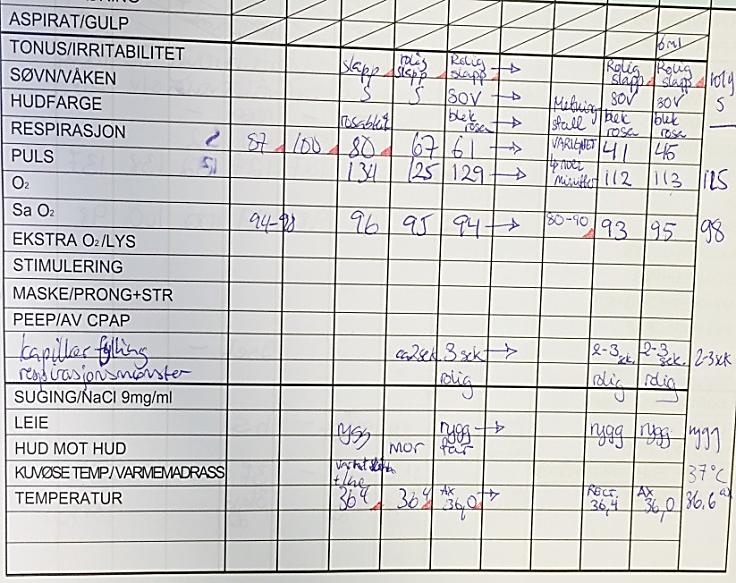 ASPIRAT/GULP
6 ml
TONUS/IRRITABILITET slapp rolig slapp Rolig slapp → Rolig slapp Rolig slapp rolg
SØVN/VÅKEN S S SOV SOV SOV S
HUDFARGE rosablek blek rosa → Metning stall blek rosa blek rosa —
RESPIRASJON 87 100 80 67 61 → VARIGHET 41 45
PULS 134 125 129 → minutter 112 113 125
O₂
Sa O₂ 94-98 96 95 94 → 80-90 93 95 98
EKSTRA O₂/LYS
STIMULERING
MASKE/PRONG+STR
PEEP/AV CPAP
kapillær fylling ca 2 sek 3 sek → 2-3 sek. 2-3 sek. 2-3 sek
respirasjonsmønster rolig rolig rolig
SUGING/NaCl 9mg/ml
LEIE rygg rygg → rygg rygg rygg
HUD MOT HUD mor far
KUVØSE TEMP./VARMEMADRASS 37°C
TEMPERATUR 36⁹ 36⁴ Ax 36,0 → Rect. 36,4 Ax 36,0 36,6 ax